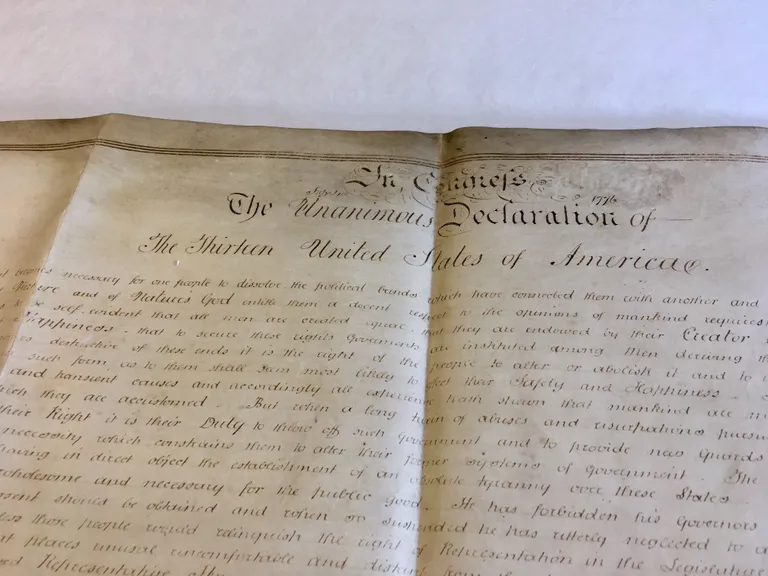 In Congress
1776
The Unanimous Declaration of
The Thirteen United States of America.
necessary for one people to dissolve the political bands which have connected them with another and
and of Natures God entitle them a decent respect to the opinions of mankind requires
self evident that all men are created equal that they are endowed by their Creator
Happiness. that to secure these rights Governments are instituted among Men deriving
destructive of these ends it is the right of the people to alter or abolish it and to
such form, as to them shall seem most likely to effect their Safety and Happiness.
and transient causes and accordingly all experience hath shewn that mankind are
which they are accustomed. But when a long train of abuses and usurpations
their Right it is their Duty to throw off such Government and to provide new Guards
necessity which constrains them to alter their former systems of Government. The
having in direct object the establishment of an absolute tyranny over these States.
wholesome and necessary for the public good. He has forbidden his Governors
should be obtained and when so suspended he has utterly neglected to
those people would relinquish the right of Representation in the Legislature
places unusual uncomfortable and distant from
Representative